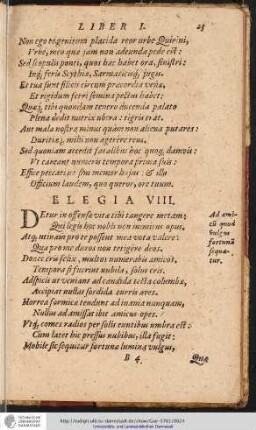 LIBER I. 23
Non ego te genitum placida reor urbe Quirini,
Urbe, meo quæ jam non adeunda pede est:
Sed scopulis ponti, quos hæc habet ora, sinistri:
Inq; feris Scythiæ, Sarmaticisq; jugis.
Et tua sunt silicis circum præcordia venæ,
Et rigidum ferri semina pectus habet:
Quæq; tibi quondam tenero ducenda palato
Plena dedit nutrix ubera: tigris erat.
Aut mala nostra minus quàm non aliena putares:
Duritiæq; mihi non agerere reus.
Sed quoniam accedit fatalibus hoc quoq; damnis:
Ut careant numeris tempora prima suis:
Effice peccati ne sim memor hujus: & illo
Officium laudem, quo queror, ore tuum.
ELEGIA VIII.
DEtur in offenso vitæ tibi tangere metam;
Qui legis hoc nobis non inimicus opus,
Atq; utinam pro te possent mea vota valere:
Quæ pro me duros non tetigere deos.
Donec eris felix, multos numerabis amicos:
Tempora si fuerint nubila, solus eris.
Adspicis ut veniant ad candida tecta columbæ,
Accipiat nullas sordida turris aves.
Horrea formicæ tendunt ad inania nunquam,
Nullus ad amissas ibit amicus opes.
Utq; comes radios per solis euntibus umbra est:
Cum latet hic pressus nubibus, illa fugit:
Mobile sic sequitur fortunæ lumina vulgus,
Ad ami-
cū quod
vulgus
fortunā
sequa-
tur.
B 4. Quæ
Universitäts- und Landesbibliothek Darmstadt